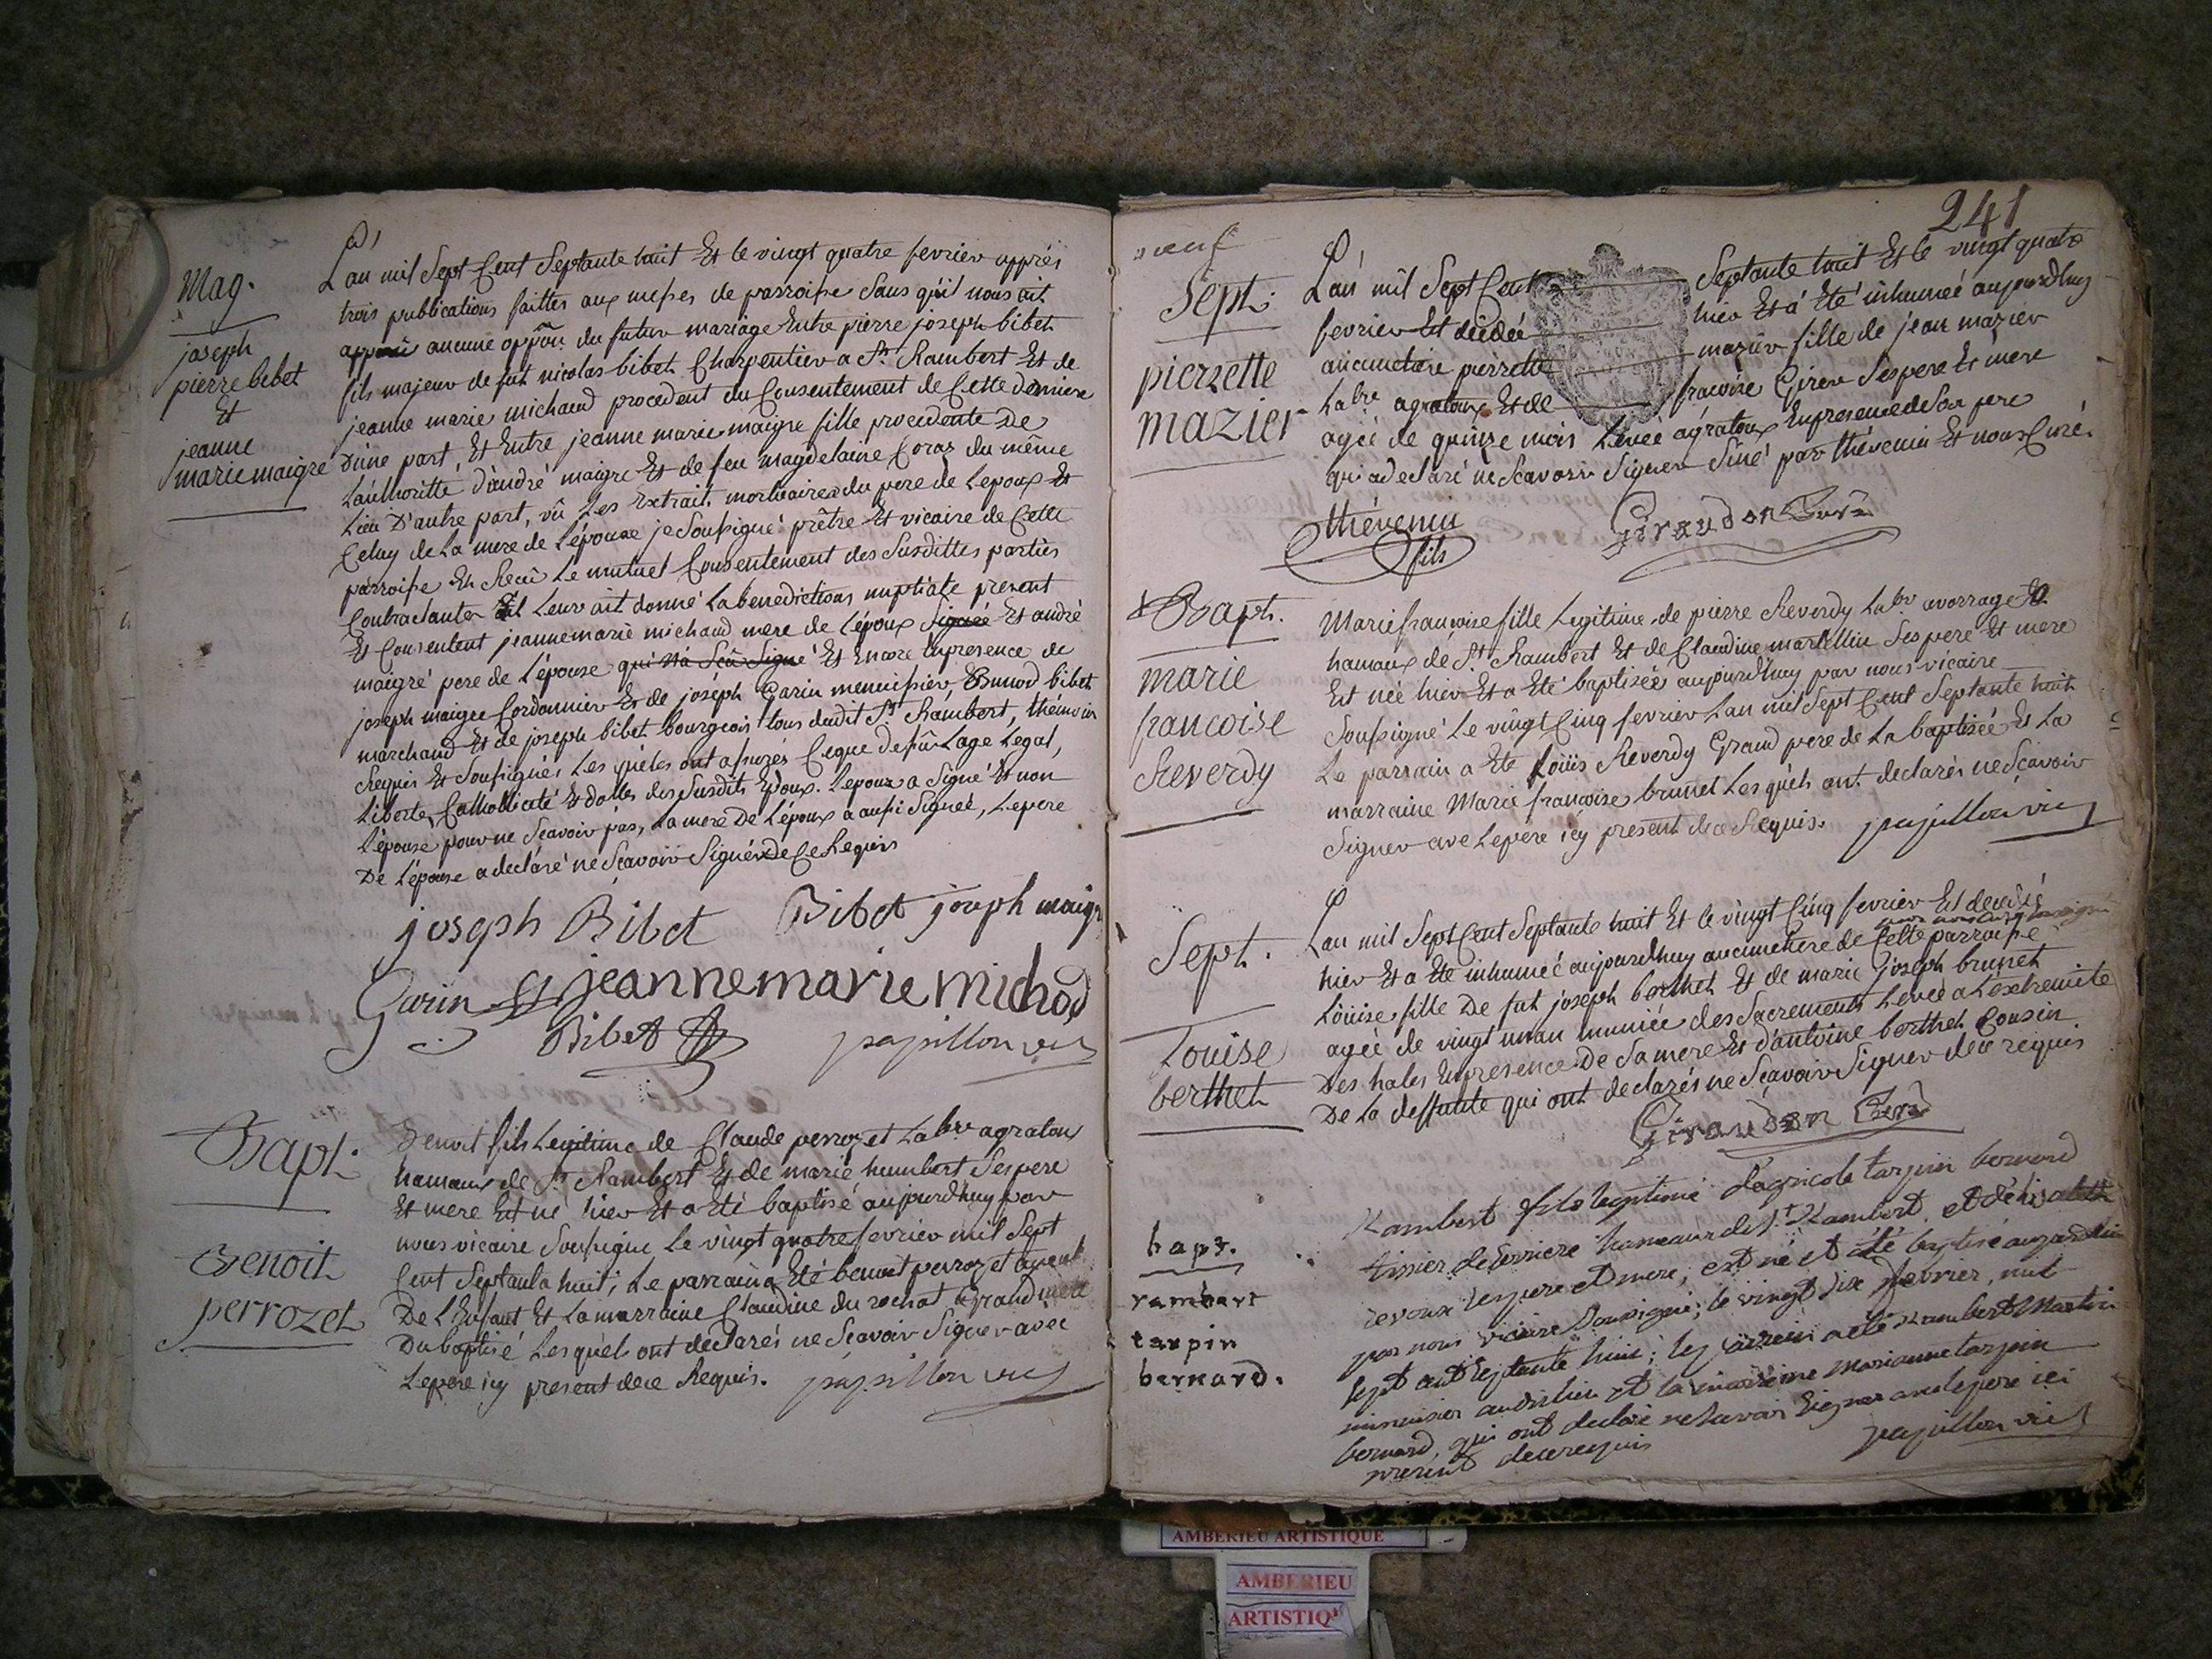 Mag.
joseph
pierre bibet
Et
jeanne
marie maigre
L'an mil Sept Cent Septante huit Et le vingt quatre fevrier apprés
trois publications faittes aux messes de parroisse Sans qu'il nous ait
apparû aucune oppôn du futur mariage Entre pierre joseph bibet
fils majeur de fut nicolas bibet Charpentier a St Rambert Et de
jeanne marie michaud procedent du Consentement de Cette derniere
D'une part, Et Entre jeanne marie maigre fille procedente De
L'authoritte d'andré maigre Et de feu magdelaine Coraz du même
Lieu D'autre part, vû Les Extrait mortuaires du pere de Lepoux Et
Celuy de La mere de L'épouse je Soussigné prêtre Et vicaire de Cette
parroisse Et Recû Le mutuel Consentement des Susdittes parties
Contractantes Et Leur ait donné La benediction nuptiale present
Et Consentent jeanne marie michaud mere de L'époux Signée Et andré
maigre pere de L'épouse qui N'a Scû Signé Et Encore Enpresence de
joseph maigre Cordonnier Et de joséph Garin menuissier, Bibet
marchand Et de joseph bibet bourgeois tous dudit St Rambert, thémoins
Requis Et Soussignés Les quéls ont assurés Ceque dessû Lage Legal,
Liberté, Catholicité Et dolles des Susdits Epoux. Lepoux a Signé Et non
L'épouse pour ne Scavoir pas, La mere De L'époux a aussi Signeé, Lepere
De L'épouse a declaré né Scavoir Signér de Ce Requis
joseph Bibet Bibet joseph maigre
Garin jeanne marie michod
Bibet papillon vic
Bapt.
Benoit
perrozet
Benoit fils Legitime de Claude perrozet Labr agratoux
hamaux de St Rambert Et de marie humbert Ses pere
Et mere Est né hier Et a Eté baptisé aujourd'huy par
nous vicaire Soussigné Le vingt quatre fevrier mil Sept
Cent Septanta huit; Le parrain a Eté benoit perrozet ayeul
De L'Enfant Et La marraine Claudine du rochat Grand mere
Du baptisé Lesquels ont declarés ne Scavoir Signer avec
Lepere icy present de ce Requis. papillon vic
241
neuf
Sept.
pierrette
mazier
L'an mil Sept Cent Septante huit Et le vingt quatre
fevrier Est décedée hier Et á Eté inhumeé aujourdhuy
aucimetiere pierrette mazier fille de jean mazier
Labr agratoux Et de francoise Girer Ses pere Et mere
ageé de quinze mois Leveé agratoux Enpresence de Son pere
qui a declaré ne Scavoir Signer Siné par thévenin Et nous Curé.
thévenin
fils
Giraudon Curé
Bapt.
marie
francoise
Reverdy
Marie francoise fille Legitime de pierre Reverdy Labr avorrage
hamaux de St Rambert Et de Claudine martellin Ses pere Et mere
Est née hier Et a Eté baptisée aujourd'huy par nous vicaire
Soussigné Le vingt Cinq fevrier L'an mil Sept Cent Septante huit
Le parrain a Eté Loüis Reverdy Grand pere de La baptiseé Et La
marraine Marie francoise brunet Lesquels ont declarés ne Scavoir
Signer avec Lepere icy present de ce Requis. papillon vic
Sept.
Louise
berthet
L'an mil Sept Cent Septante huit Et le vingt Cinq fevrier Est decedeé
par nous curé soussigné
hier Et a Eté inhumeé aujourdhuy aucimetiere de Cette parroisse
Loüise fille De fut joseph berthet Et de marie joseph brunet
ageé de vingt un an muniée des Sacrements Leveé a L'extremite
Des hales Enpresence De Sa mere Et d'antoine berthet Cousin
De La deffunte qui ont declarés ne Scavoir Signer de ce requis
Giraudon Curé
bapt.
rambert
tarpin
bernard.
Rambert fils legitime d'agricole tarpin bernard
tissier de Serriere hameau de St Rambert, et d'élisabeth
devoux ses pere et mere, est né et été baptisé aujourdhui
par nous vicaire soussigné; le vingt six fevrier, mil
sept cent septante huit; le parrein a été Rambert Martin
menuisier audit lieu et la marreine marianne tarpin
bernard, qui ont declaré ne savoir signer avec le pere ici
present de ce requis papillon vic
AMBERIEU ARTISTIQUE
AMBERIEU
ARTISTIQ